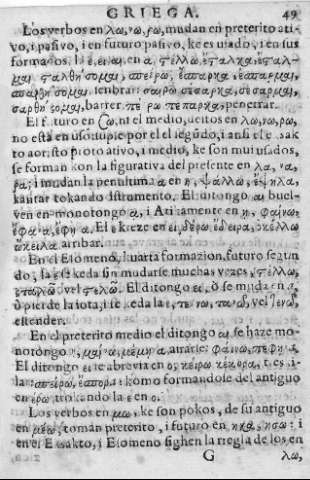 GRIEGA. 49
Los verbos en λω, νω, ρω, mudan en preterito ati-
vo, i pasivo, i en futuro pasivo, ke es usado, i en sus
formados, la ε, ει, ω, en α, τέλλω, ἔταλκα, ἔταλ-
μαι ταλθήσομαι, σπείρω, ἔσπαρκα, ἔσπαρμαι,
σπαρθήσομαι, senbrar: σαίρω σέσαρκα, σέσαρμαι,
σαρθήσομαι, barrer. πείρω πέπαρκα, penetrar.
El futuro en
no está en uso: suple por el el segúdo, i ansi el
to aoristo proto ativo, i medio, ke son mui usados,
se forman kon la figurativa del presente en λα, να,
ρα; i mudan la penultima α en η, ψάλλω, ἔψηλα,
kantar tokando istrumento. El ditongo αι buel-
ven en monotongo α, i Aticamente en η, φαίνω,
ἔφανα, ἔφηνα. El ε kreze en ει, δέρω ἔδειρα, οκέλλω
ὤκειλα arribar.
En el Eſomeno, kuarta formazion, futuro segun-
do, la ε se keda sin mudarse muchas vezes, τέλλω,
vel τελῶ. El ditongo ει, ò se muda en α,
ò pierde la iota, i se keda la ε, τείνω, τανῶ, vel τενῶ,
estender.
En el preterito medio el ditongo αι se haze mo-
notongo η, μαίνω, μέμηνα, airarse: φαίνω, πέφηνα.
El ditongo ει se abrevia en ο; κείρω κέκορα,
la: σπείρω, ἔσπορα: komo formandole del antiguo
en ερω, trokando la ε en ο.
Los verbos en μω, ke son pokos, de su antiguo
en μέω, toman preterito, i futuro en ηκα, ησω: i
en el Esakto, i Eſomeno sighen la rregla de los en
G λω,